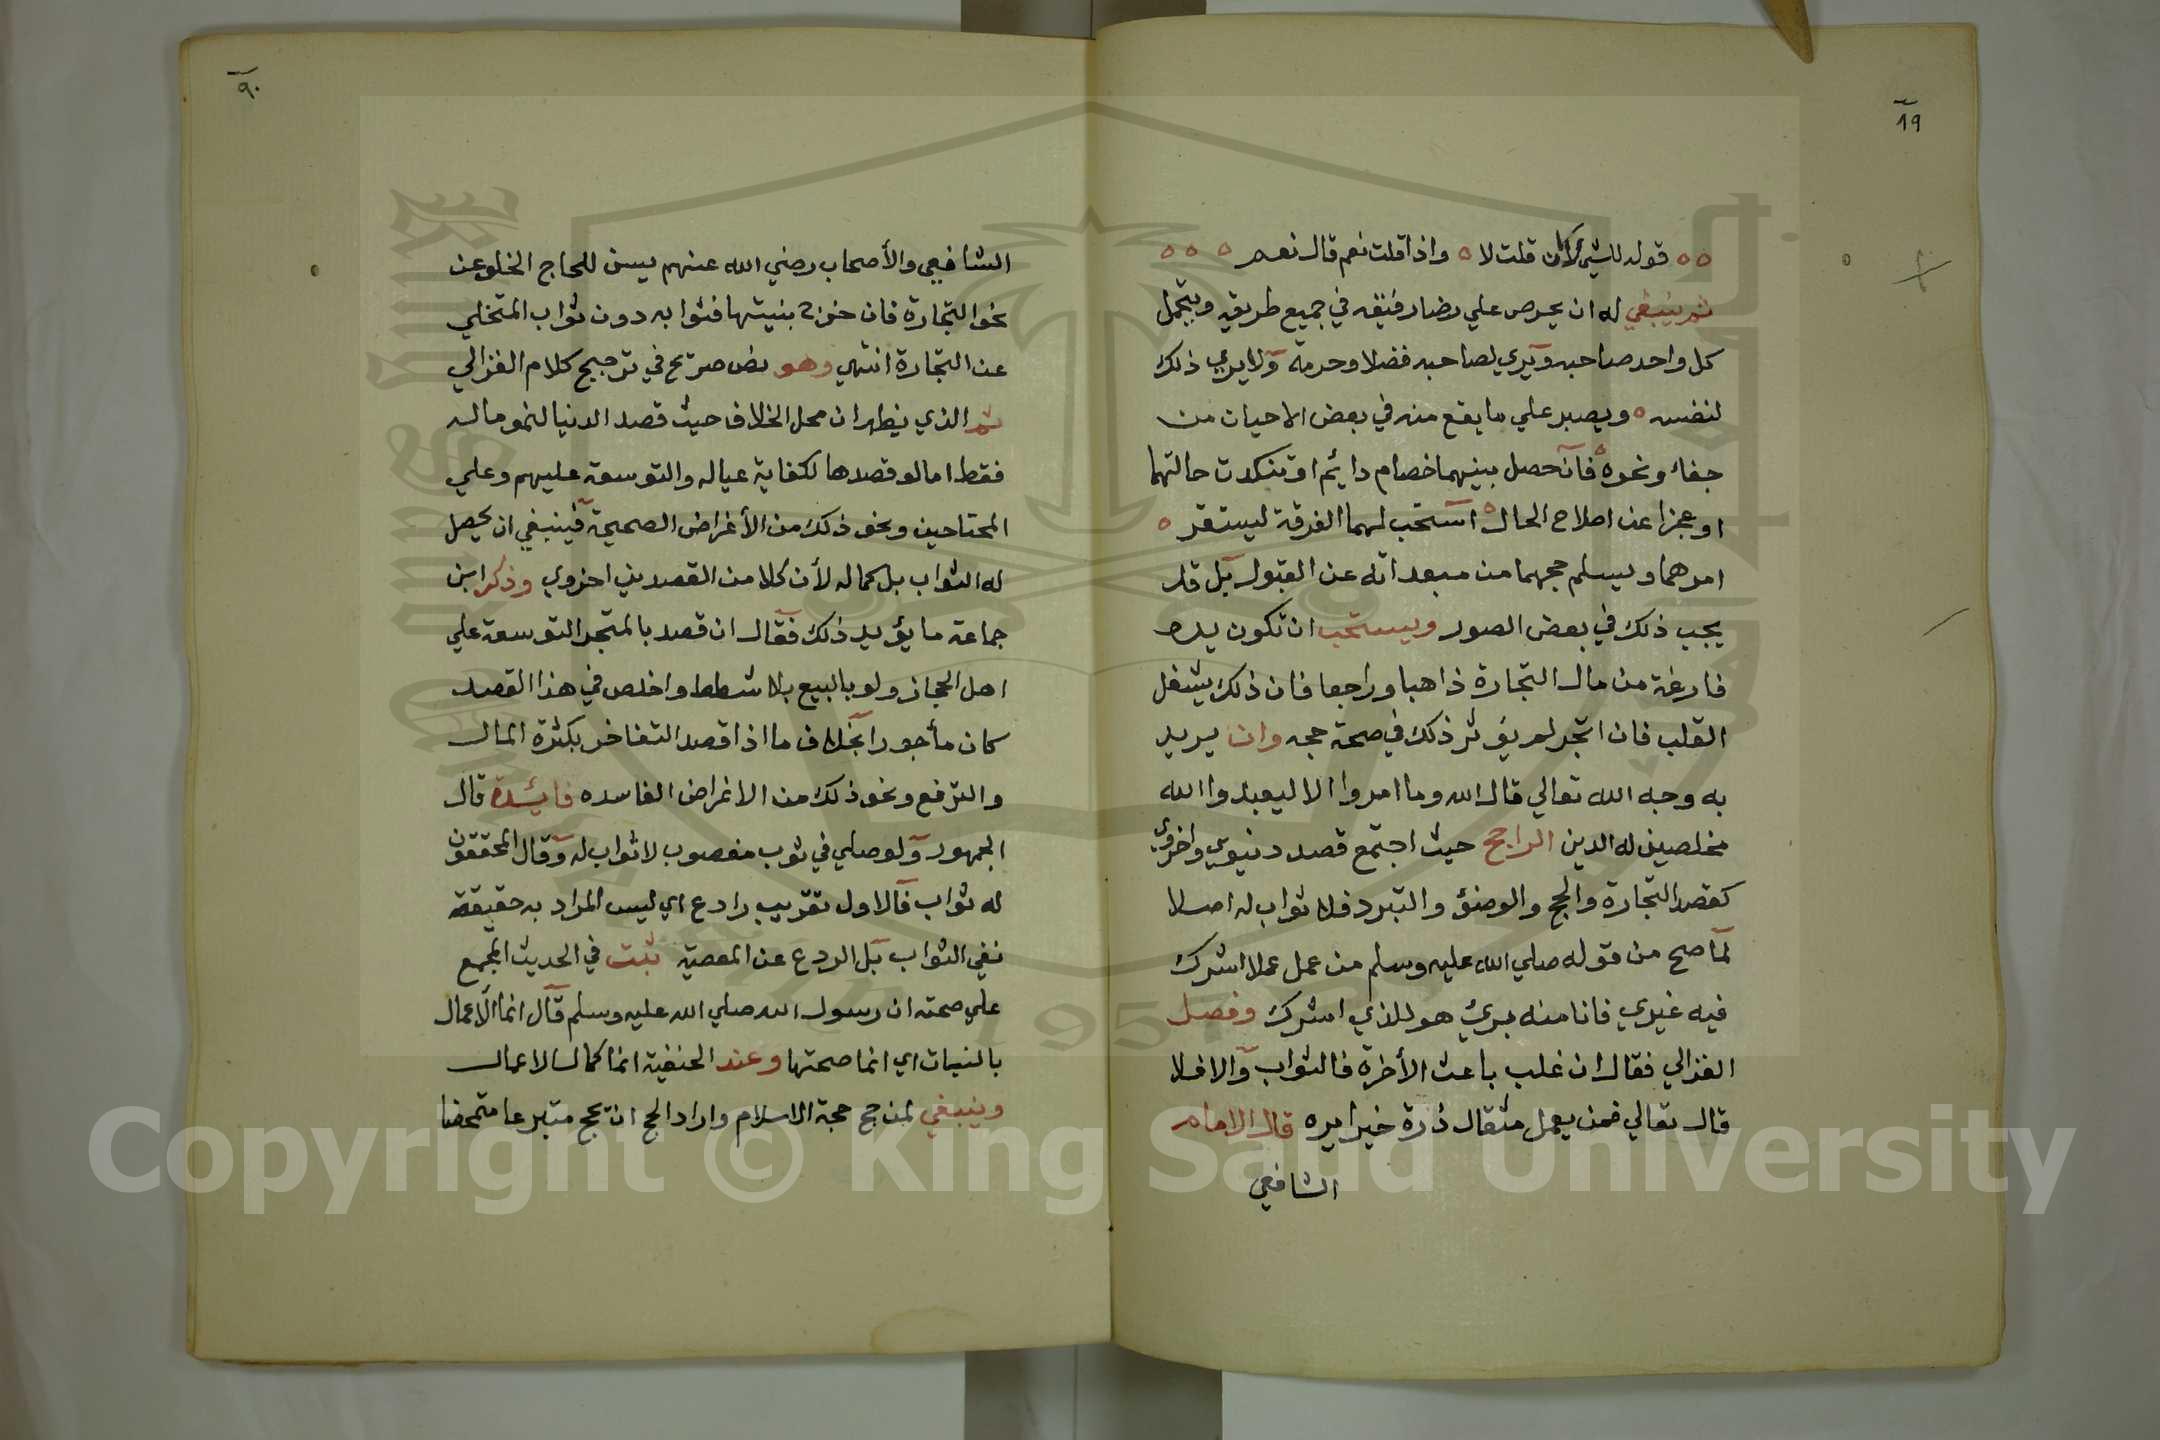 ١٩
قوله للشيئ كان قلت لا وإذا قلت نعم قال نعم
ثم ينبغي له ان يحرص علي رضا رفيقه في جميع طريقه ويتحمل
كل واحد صاحبه ويري لصاحبه فضلا وحرمة ولا يري ذلك
لنفسه ويصبر علي ما يقع منه في بعض الاحيات من
جفاء ونحوه فان حصل بينهما خصام دايئم او تنكدت حالتهما
او عجزا عن اصلاح الحال استحب لهما الفرقة ليستقر
امرهما ويسلم حجهما من مبعداته عن القبول بل قد
يجب ذلك في بعض الصور ويستحب ان تكون يده
فارغة من مال التجارة ذاهبا وراجعا فان ذلك يشغل
القلب فان اتجر لم يؤثر ذلك في صحة حجه وان يريد
به وجه الله تعالي قال الله وما امروا الا ليعبدوا الله
مخلصين له الدين الراجح حيث اجتمع قصد دنيوي واخروي
كقصد التجارة والحج والوضؤ والتبرد فلا ثواب له اصلا
لما صح من قوله صلي الله عليه وسلم من عمل عملا اشرك
فيه غيري فانا منه بريئ هو للذي اشرك وفصل
الغزالي فقال ان غلب باعث الأخرة فالثواب والا فلا
قال تعالي فمن يعمل مثقال ذرة خيرا يره قال الامام
الشافعي
٩٠
الشافعي والأصحاب رضي الله عنهم يسن للحاج الخلو عن
نحو التجارة فان خرج بنيتها فثوابه دون ثواب المتخلي
عن التجارة انتهي وهو نص صريح في ترجيح كلام الغزالي
ثم الذي يظهر ان محل الخلاف حيث قصد الدنيا لنمو ماله
فقط اما لو قصدها لكفاية عياله والتوسعة عليهم وعلي
المحتاجين ونحو ذلك من الأغراض الصحيحة فينبغي ان يحصل
له الثواب بل كماله لأن كلا من القصدين اخروي وذكر ابن
جماعة ما يؤيد ذلك فقال ان قصد بالمتجر التوسعة علي
اهل الحجاز ولو بالبيع بلا شطط واخلص في هذا القصد
كان مأجورا بخلاف ما اذا قصد التفاخر بكثرة المال
والترفع ونحو ذلك من الاغراض الفاسده فايئدة قال
الجمهور ولو صلي في ثوب مغصوب لا ثواب له وقال المحققون
له ثواب فالاول تقريب رادع اي ليس المراد به حقيقة
نفي الثواب بل الردع عن المعصية ثبت في الحديث المجمع
علي صحته ان رسول الله صلي الله عليه وسلم قال انما الأعمال
بالنيات اي انما صحتها وعند الحنفية انما كمال الاعمال
وينبغي لمن حج حجة الاسلام واراد الحج ان يحج متبرعا متمحضا
Copyright © King Saud University
1957